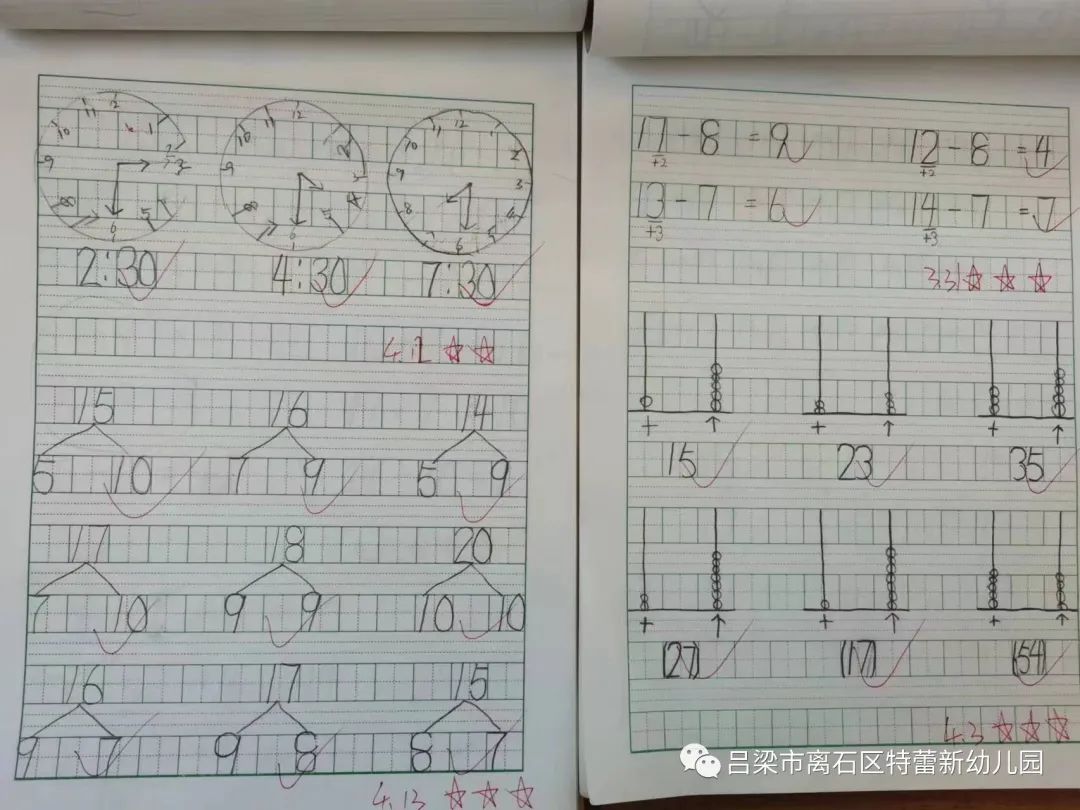 12 12 12
11 1 11 1 11 1
10 10 2 10 2
9 3 9 9 3
8 8 4 8 4
5 5 7 5
6 6 6
2:30 4:30 7:30
4.12 ☆☆
15 16 14
5 10 7 9 5 9
17 18 20
7 10 9 9 10 10
16 17 15
9 7 9 8 8 7
4.13 ☆☆☆
17-8=9 12-8=4
+2 +2
13-7=6 14-7=7
+3 +3
3.31 ☆☆☆
+ ↑ + ↑ + ↑
15 23 35
+ ↑ + ↑ + ↑
(27) (17) (54)
4.3 ☆☆☆
吕梁市离石区特蕾新幼儿园